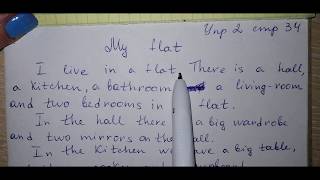 Упр 2 стр 34
My flat
I live in a flat. There is a hall,
a kitchen, a bathroom a living-room
and two bedrooms in flat.
In the hall there a big wardrobe
and two mirrors on the wall.
In the kitchen we have a big table,